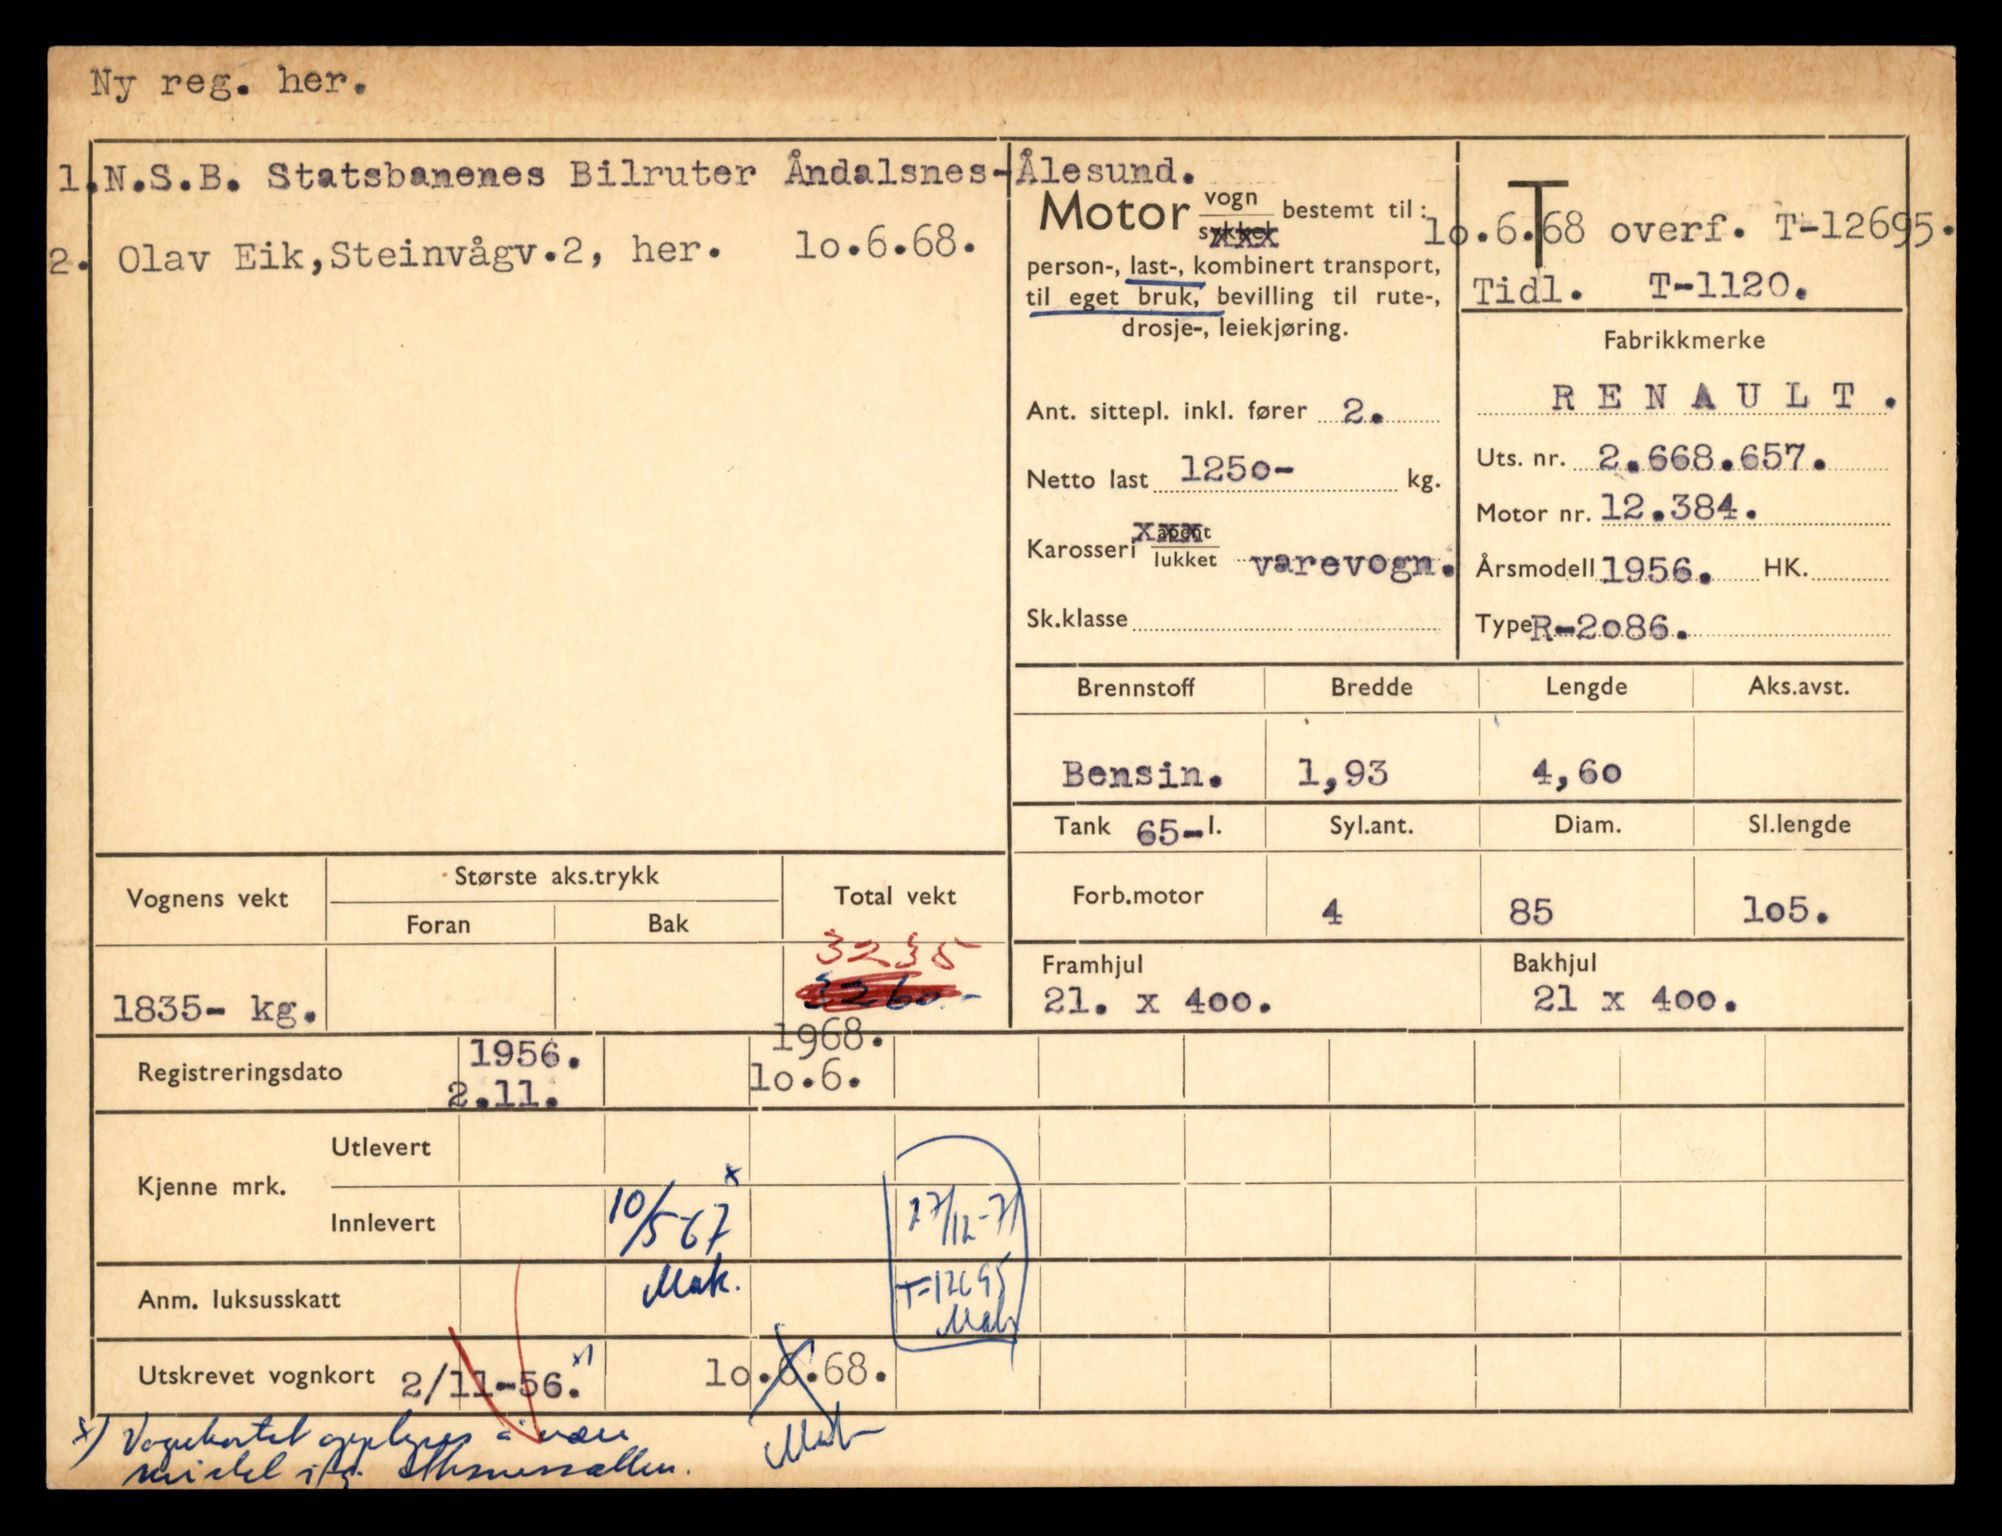 Ny reg. her.
1. N.S.B. Statsbanenes Bilruter Åndalsnes-Ålesund.
2. Olav Eik, Steinvågv.2, her. 10.6.68.
Motor vogn sykkel bestemt til:
person-, last-, kombinert transport,
til eget bruk, bevilling til rute-,
drosje-, leiekjøring.
Ant. sittepl. inkl. fører 2.
Netto last 1250- kg.
Karosseri åpent lukket varevogn.
Sk.klasse
T
10.6.68 overf. T-12695.
Tidl. T-1120.
Fabrikkmerke
RENAULT.
Uts. nr. 2.668.657.
Motor nr. 12.384.
Årsmodell 1956. HK.
Type R-2086.
Brennstoff Bredde Lengde Aks.avst.
Bensin. 1,93 4,60
Tank 65- l. Syl.ant. Diam. Sl.lengde
Forb.motor 4 85 105.
Framhjul Bakhjul
21. x 400. 21 x 400.
Vognens vekt Største aks.trykk Total vekt
Foran Bak
3235
1835- kg. 3260.-
Registreringsdato 1956. 1968.
2.11. 10.6.
Kjenne mrk. Utlevert
Innlevert 10/5-67 x 27/12-71
Mak. T-12695
Mak
Anm. luksusskatt
Utskrevet vognkort 2/11-56. x) 10.6.68.
Mak
x) Vognkortet opplyses å være
mistet